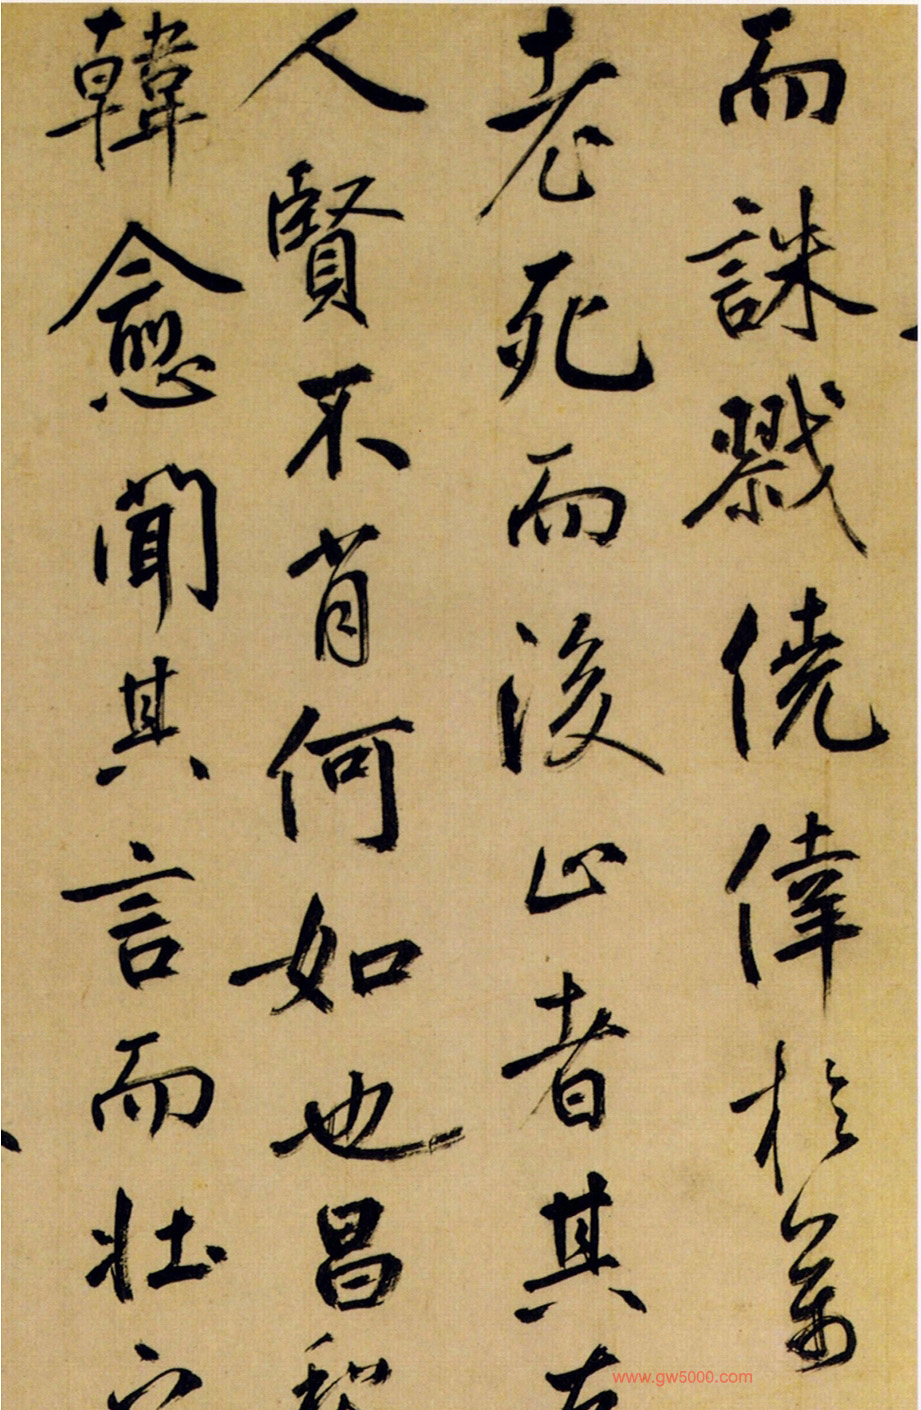 而誅戮僥倖於萬
老死而後止者其
人賢不肖何如也昌
韓愈聞其言而壯
www.gw5000.com